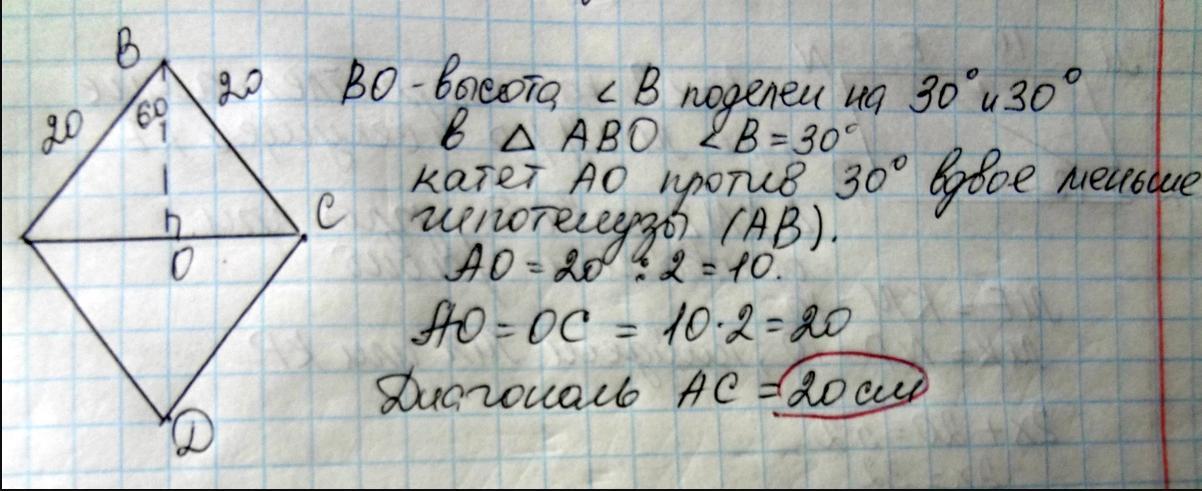 B
20
20
60
C
O
D
BO - высота < B поделен на 30° и 30°
в △ ABO < B = 30°
катет AO против 30° вдвое меньше
гипотенузы (AB).
AO = 20 : 2 = 10.
AO = OC = 10 · 2 = 20
Диагональ AC = 20 см